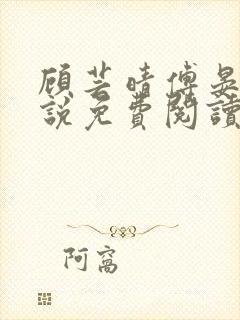 顾芸晴傅晏
說免費閱讀
阿窩